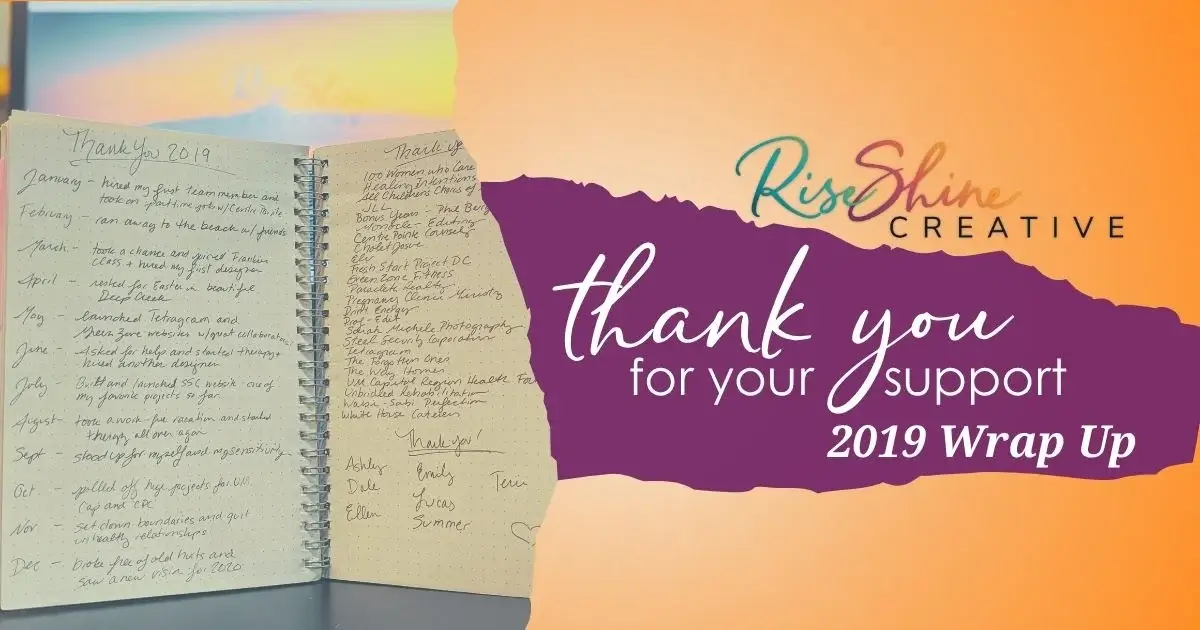 Thank You 2019
January - hired my first team member and
took on part time job w/ Centre Pointe
February - ran away to the beach w/ friends
March - took a chance and joined Frankies
class + hired my first designer
April - rested for Easter in beautiful
Deep Creek
May - launched Tetragram and
Green Zone websites w/ great collaborators!
June - Asked for help and started therapy +
hired another designer
July - Built and launched SSC website - one of
my favorite projects so far
August - took a work-free vacation and started
therapy all over again
Sept - stood up for myself and my sensitivity
Oct - pulled off huge projects for UM
Cap and CPC
Nov - set down boundaries and quit
unhealthy relationships
Dec - broke free of old hurts and
saw a new vision for 2020
Thank yo
100 Women who Care
Healing Intentions
All Childrens Chorus of
JLL
Bonus Years - Phil Berg
Monocle - Editing
Centre Pointe Counseling
Chalet Dosie
Fresh Start Project DC
Green Zone Fitness
Paraclete Realty
Pregnancy Clinic Ministry
Energy
Prof-Edit
Sarah Michele Photography
Steel Security Corporation
Tetragram
The Forgotten Ones
The Way Homes
UM Capital Region Health Fou
Unbridled Rehabilitation
Wabi-Sabi Perfection
White House Caterers
Thank you!
Ashley Emily Terin
Dale Lucas
Ellen Summer
RiseShine
CREATIVE
thank you
for your support
2019 Wrap Up